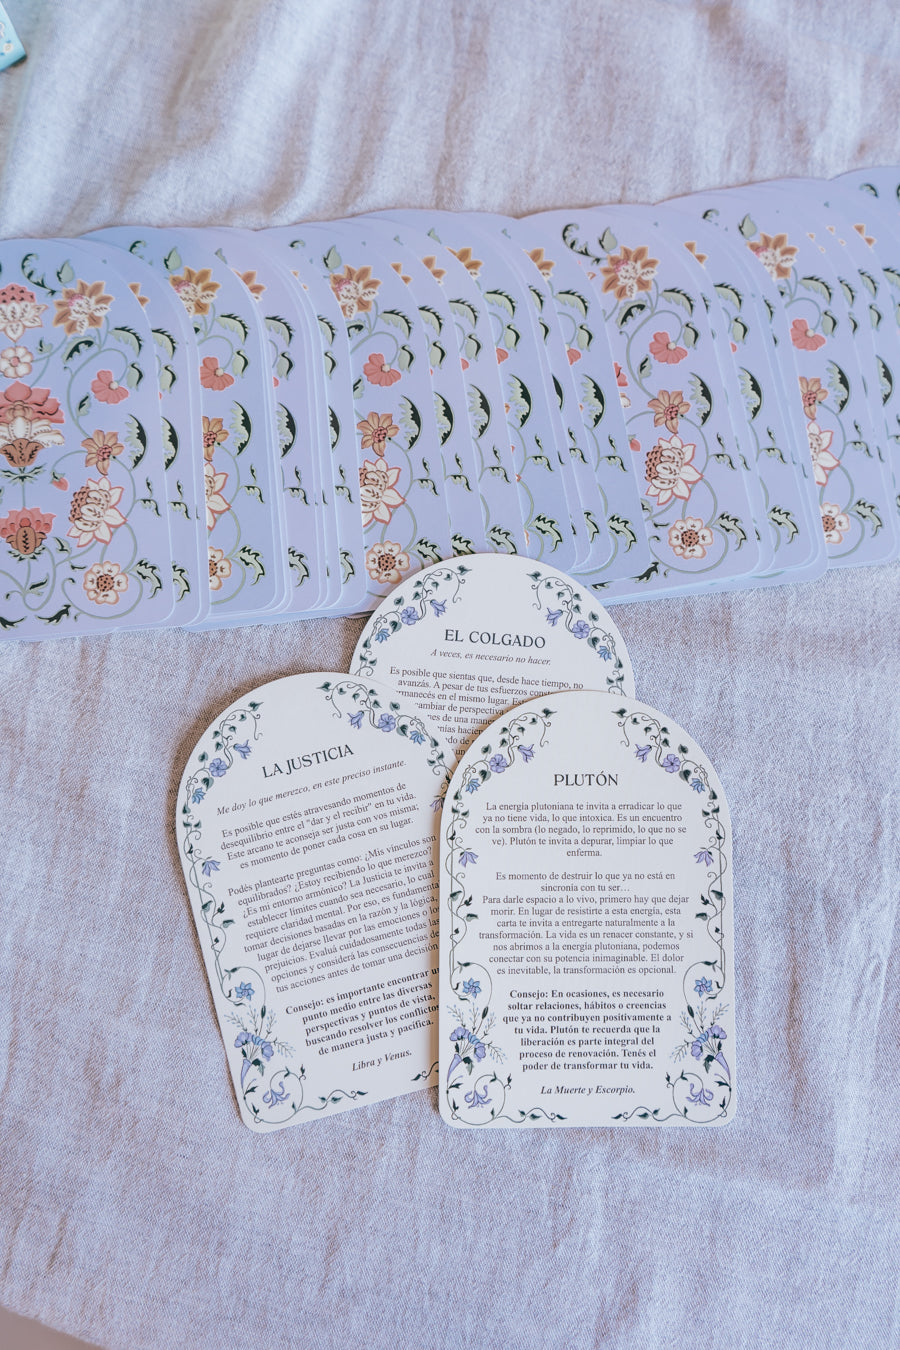 EL COLGADO
A veces, es necesario no hacer.
Es posible que sientas que, desde hace tiempo, no
avanzás. A pesar de tus esfuerzos
en el mismo lugar.
cambiar de perspectiva
de una
LA JUSTICIA
Me doy lo que merezco, en este preciso instante.
Es posible que estés atravesando momentos de
desequilibrio entre el "dar y el recibir" en tu vida.
Este arcano te aconseja ser justa con vos misma;
es momento de poner cada cosa en su lugar.
Podés plantearte preguntas como: ¿Mis vínculos son
equilibrados? ¿Estoy recibiendo lo que merezco?
¿Es mi entorno armónico? La Justicia te invita a
establecer límites cuando sea necesario, lo cual
requiere claridad mental. Por eso, es fundamental
tomar decisiones basadas en la razón y la lógica,
lugar de dejarse llevar por las emociones o los
prejuicios. Evaluá cuidadosamente todas las
opciones y considerá las consecuencias de
tus acciones antes de tomar una decisión.
Consejo: es importante encontrar un
punto medio entre las diversas
perspectivas y puntos de vista,
buscando resolver los conflictos
de manera justa y pacífica.
Libra y Venus.
PLUTÓN
La energía plutoniana te invita a erradicar lo que
ya no tiene vida, lo que intoxica. Es un encuentro
con la sombra (lo negado, lo reprimido, lo que no se
ve). Plutón te invita a depurar, limpiar lo que
enferma.
Es momento de destruir lo que ya no está en
sincronía con tu ser…
Para darle espacio a lo vivo, primero hay que dejar
morir. En lugar de resistirte a esta energía, esta
carta te invita a entregarte naturalmente a la
transformación. La vida es un renacer constante, y si
nos abrimos a la energía plutoniana, podemos
conectar con su potencia inimaginable. El dolor
es inevitable, la transformación es opcional.
Consejo: En ocasiones, es necesario
soltar relaciones, hábitos o creencias
que ya no contribuyen positivamente a
tu vida. Plutón te recuerda que la
liberación es parte integral del
proceso de renovación. Tenés el
poder de transformar tu vida.
La Muerte y Escorpio.